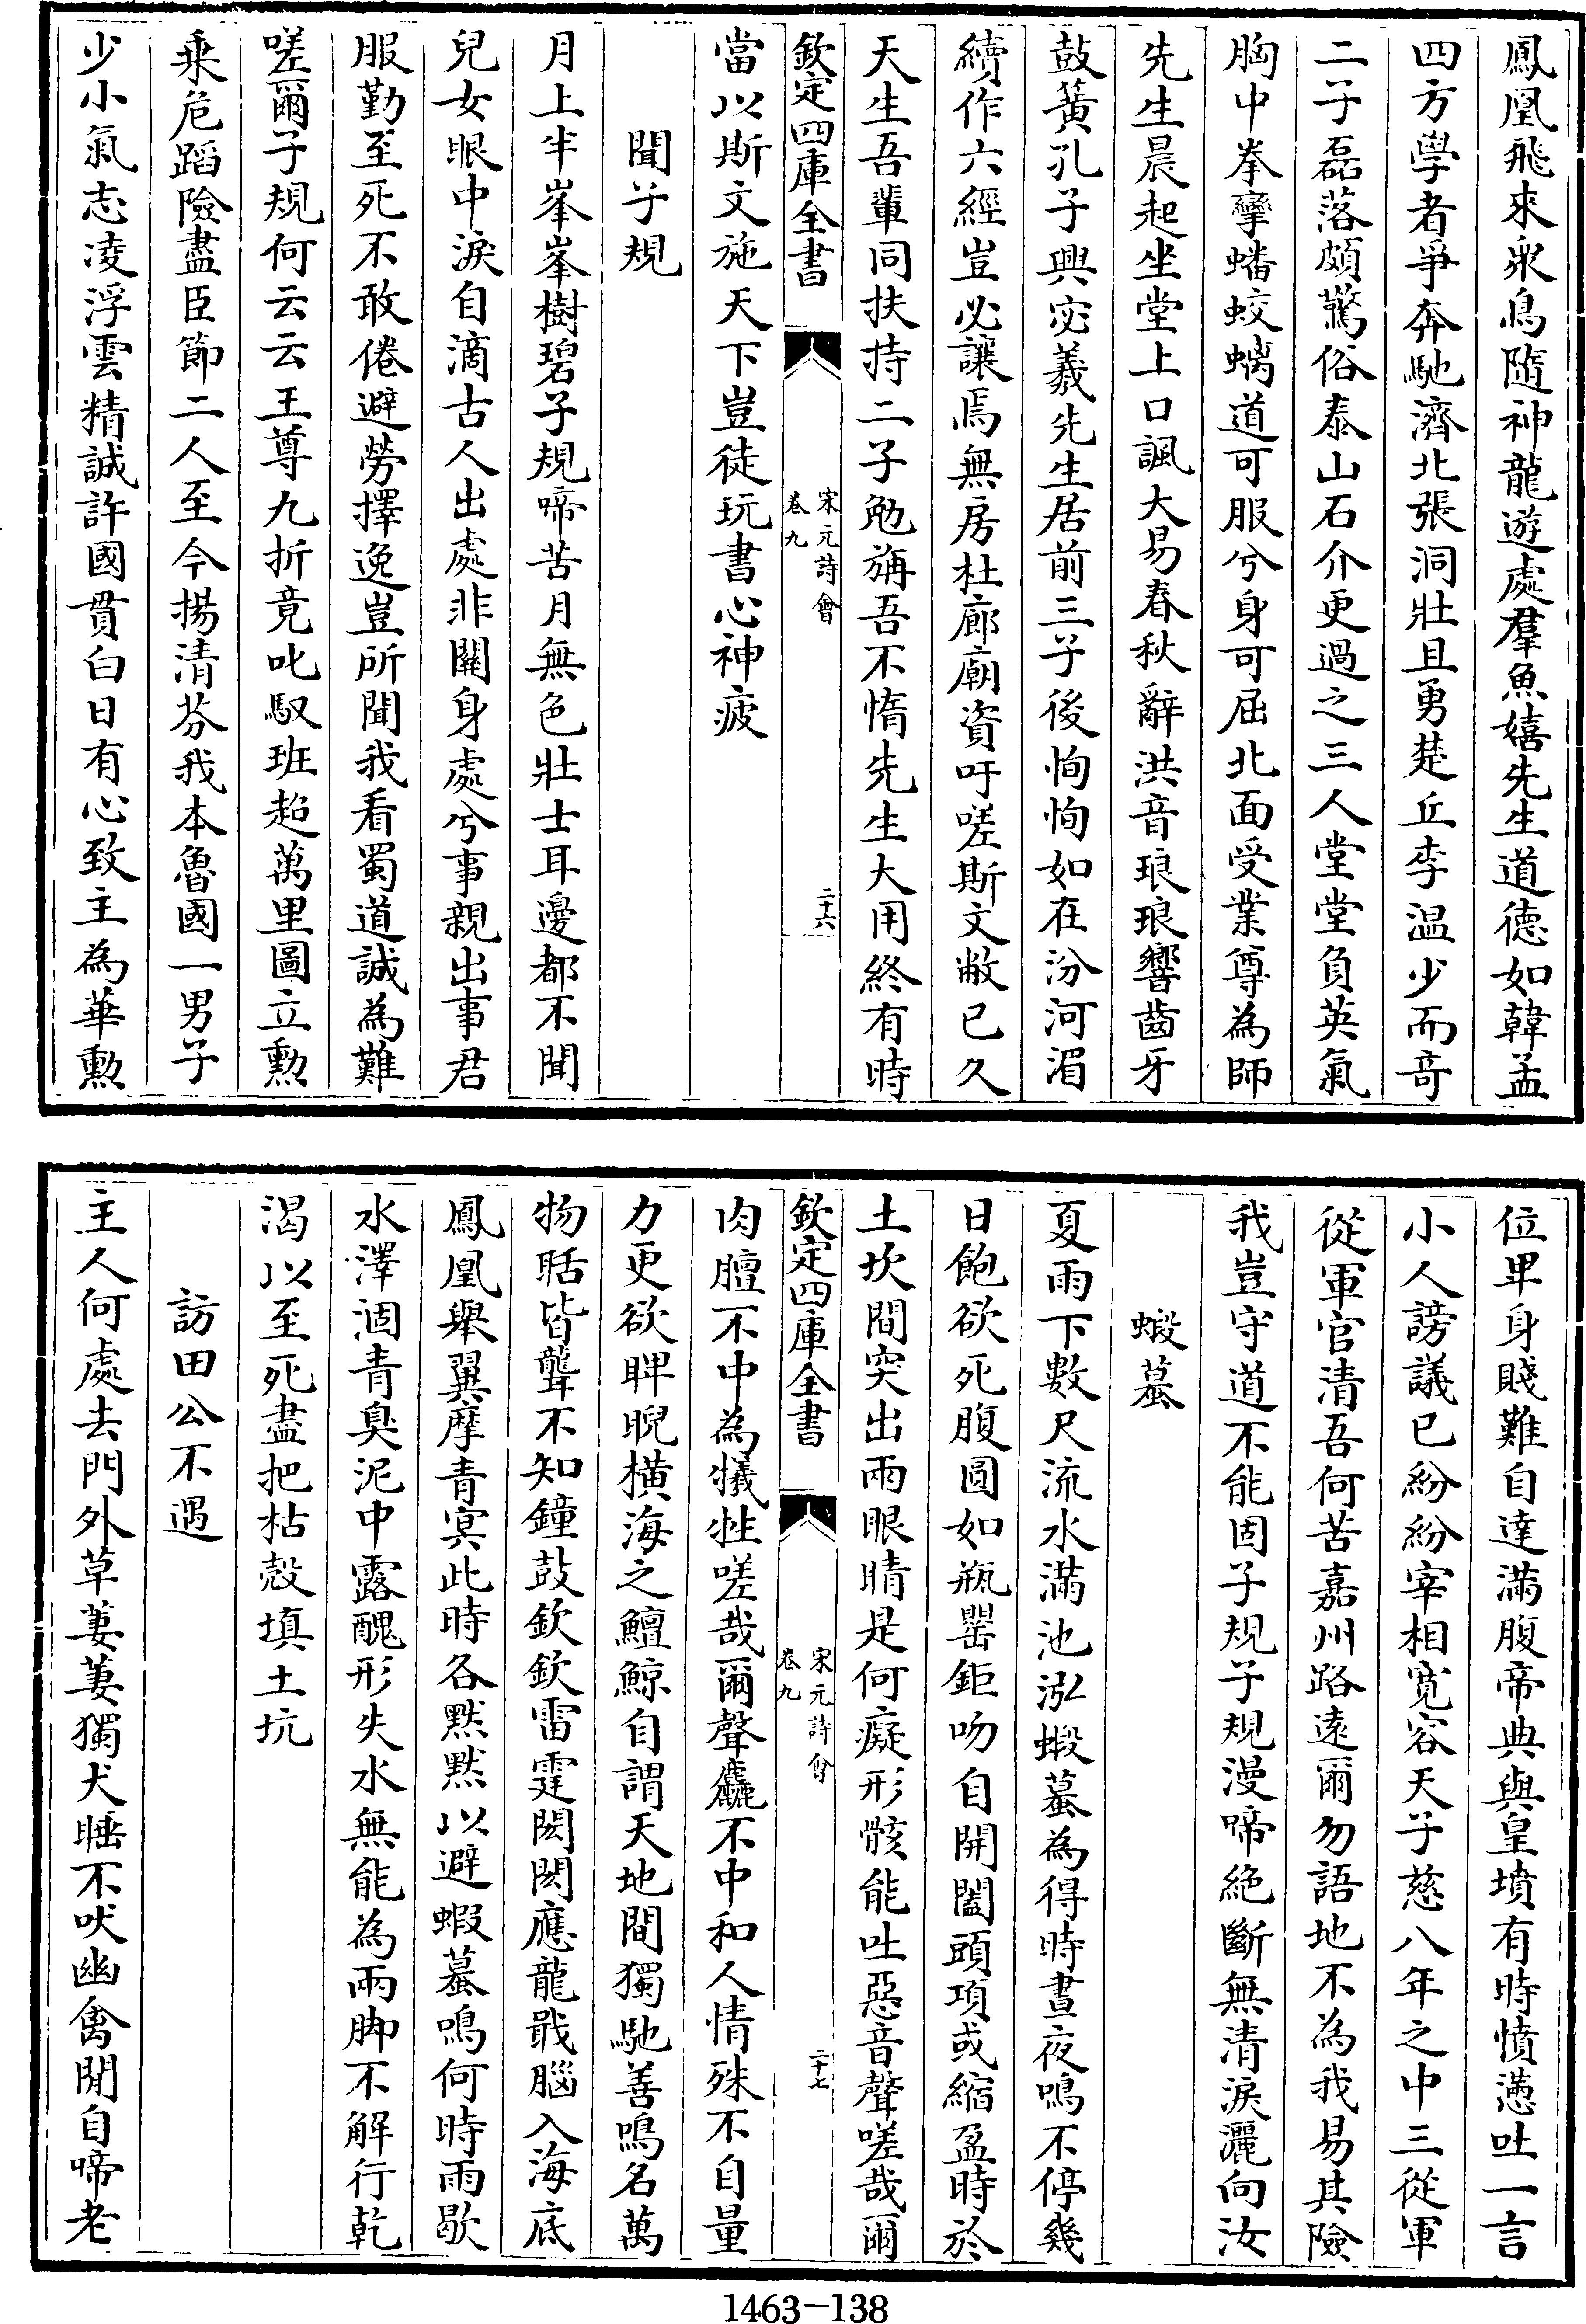 鳳凰飛來衆鳥隨神龍遊處羣魚嬉先生道德如韓孟
四方學者爭奔馳濟北張洞壯且勇楚丘李温少而竒
二子磊落頗驚俗泰山石介更過之三人堂堂負英氣
胸中拳攣蟠蛟螭道可服兮身可屈北面受業尊為師
先生晨起坐堂上口諷大易春秋辭洪音琅琅響齒牙
鼓簧孔子興宓羲先生居前三子後恂恂如在汾河湄
續作六經豈必讓焉無房杜廊廟資吁嗟斯文敝已久
天生吾輩同扶持二子勉旃吾不惰先生大用終有時
欽定四庫全書
宋元詩會
卷九
二十六
當以斯文施天下豈徒玩書心神疲
聞子規
月上半峯峯樹碧子規啼苦月無色壯士耳邊都不聞
兒女眼中淚自滴古人出處非關身處兮事親出事君
服勤至死不敢倦避勞擇逸豈所聞我看蜀道誠為難
嗟爾子規何云云王尊九折竟叱馭班超萬里圖立勲
乘危蹈險盡臣節二人至今揚清芬我本魯國一男子
少小氣志凌浮雲精誠許國貫白日有心致主為華勲
位卑身賤難自達滿腹帝典與皇墳有時憤懣吐一言
小人謗議已紛紛宰相寬容天子慈八年之中三從軍
從軍官清吾何苦嘉州路遠爾勿語地不為我易其險
我豈守道不能固子規子規漫啼絶斷無清淚灑向汝
蝦蟇
夏雨下數尺流水滿池泓蝦蟇為得時晝夜鳴不停幾
日飽欲死腹圓如瓶罌鉅吻自開闔頭項或縮盈時於
土坎間突出兩眼睛是何癡形骸能吐惡音聲嗟哉爾
欽定四庫全書
宋元詩會
卷九
二十七
肉膻不中為犧牲嗟哉爾聲麤不中和人情殊不自量
力更欲睥睨橫海之鱣鯨自謂天地間獨馳善鳴名萬
物聒皆聾不知鐘鼓欽欽雷霆閎閎應龍戢腦入海底
鳳凰舉翼摩青冥此時各黙黙以避蝦蟇鳴何時雨歇
水澤涸青臭泥中露醜形失水無能為兩脚不解行乾
渴以至死盡把枯殻填土坑
訪田公不遇
主人何處去門外草萋萋獨犬睡不吠幽禽閒自啼老
1463-138